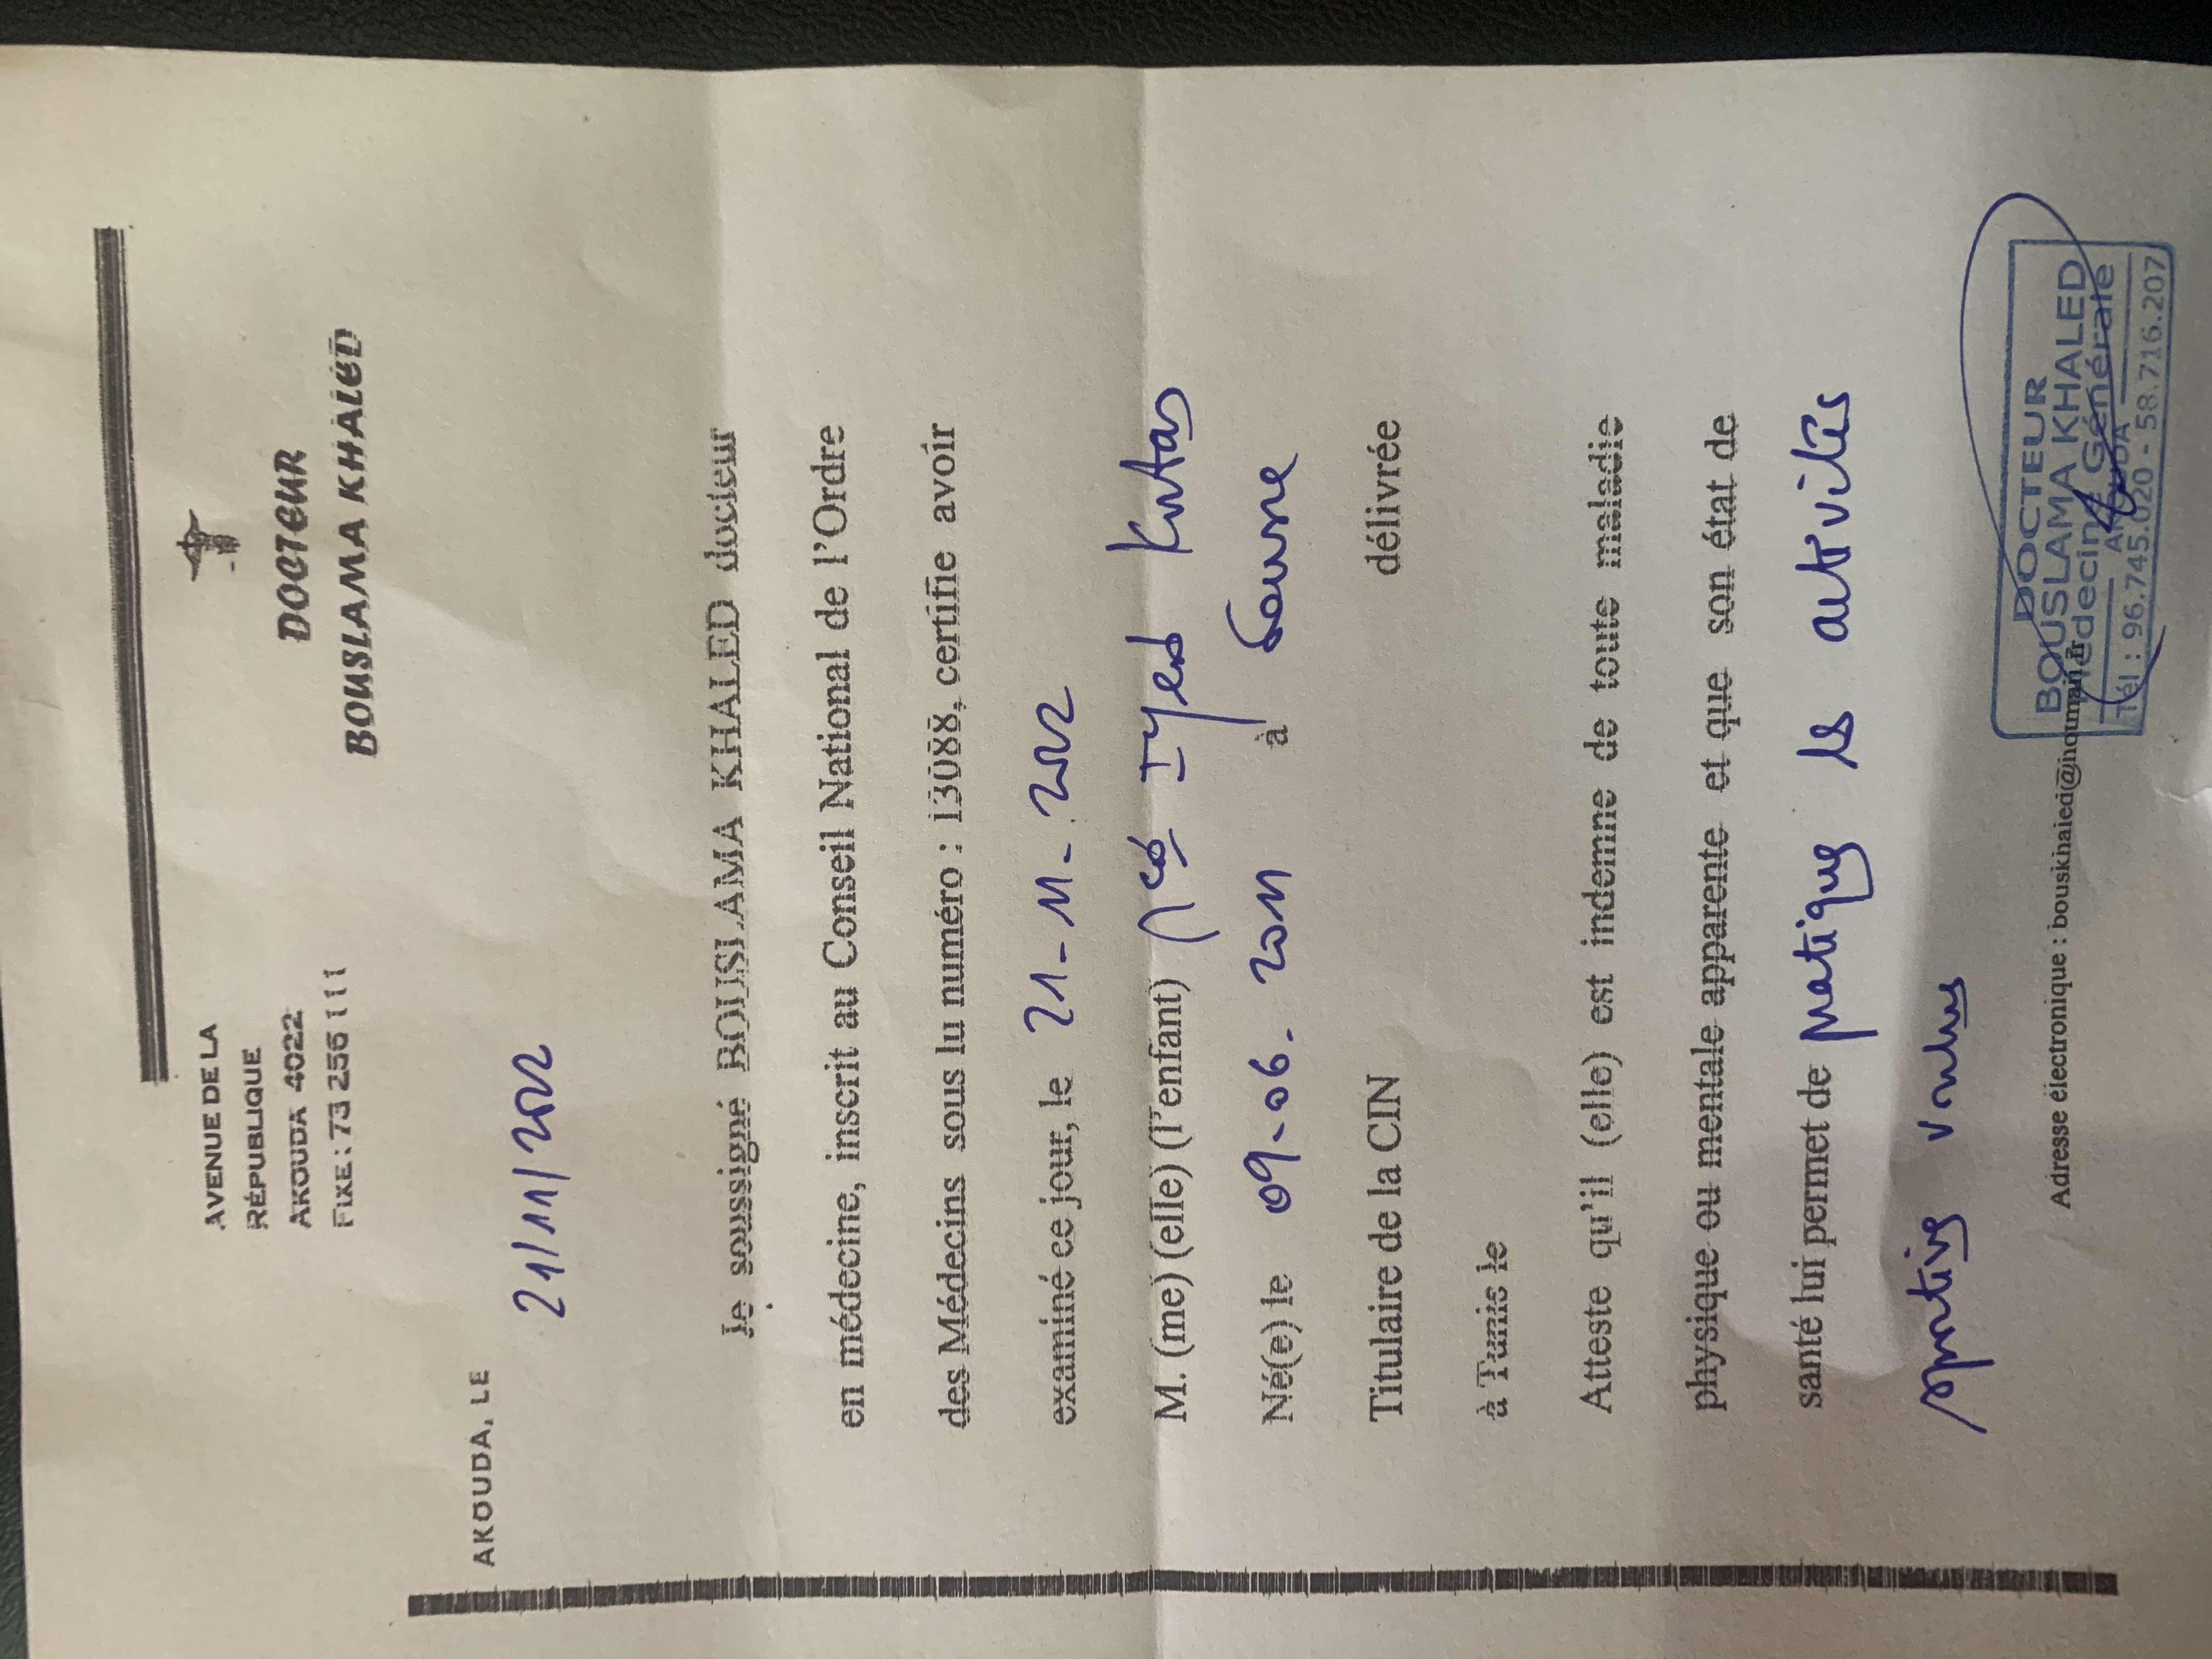 AVENUE DE LA
RÉPUBLIQUE
AKOUDA 4022
FIXE : 73 256 111
DOCTEUR
BOUSLAMA KHALED
AKOUDA, LE
21/11/2022
Je soussigné BOUSLAMA KHALED docteur
en médecine, inscrit au Conseil National de l'Ordre
des Médecins sous lu numéro : 13088, certifie avoir
examiné ce jour, le 21-11-2022
M. (me) (elle) (l'enfant) Iyed
Né(e) le 09-06-2011 à Sousse
Titulaire de la CIN délivrée
à Tunis le
Atteste qu'il (elle) est indemne de toute maladie
physique ou mentale apparente et que son état de
santé lui permet de pratiquer les activités
sportives voulues
DOCTEUR
BOUSLAMA KHALED
Médecine Générale
AKOUDA
Tél : 96.745.020 - 58.716.207
Adresse électronique : bouskhaled@hotmail.fr